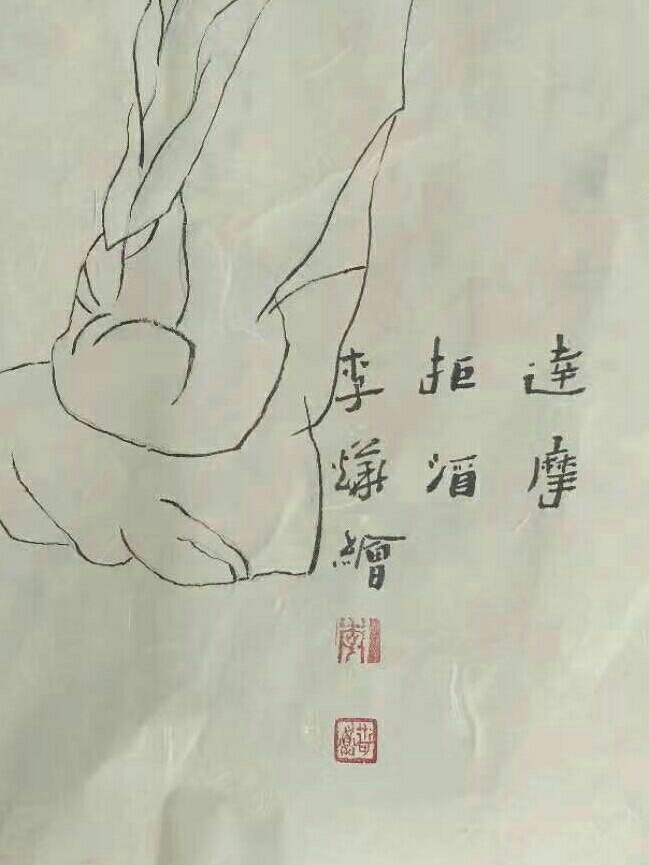 達摩
拒酒
李燁繪